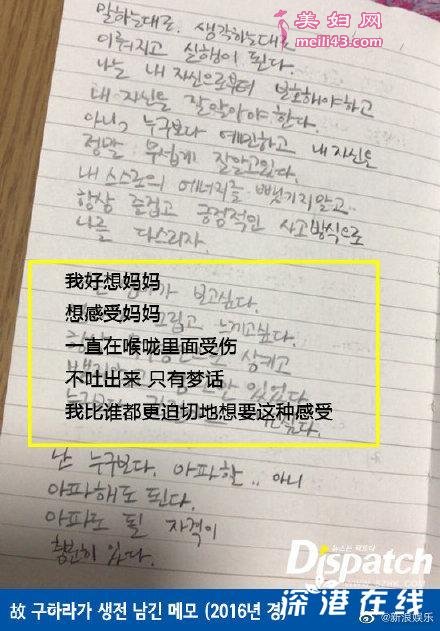 美妇网
meili43.com
말하는대로. 생각하는대로
이뤄지고 실행이 된다.
나는 내 자신으로부터 보호해야하고
내 자신을 잘 알아야 한다.
아니, 누구보다 예민하고 내 자신은
정말 무섭게 잘 알고있다.
내 스스로의 에너지를 뺏기지 말고
항상 즐겁고 긍정적인 사고방식으로
나를 다스리자.
가 보고싶다.
그립고 느끼고싶다.
我好想妈妈
想感受妈妈
一直在喉咙里面受伤
不吐出来 只有梦话
我比谁都更迫切地想要这种感受
난 누구보다. 아파할.. 아니
아파해도 된다.
아파도 될 자격이
충분히 있다.
뉴스는 팩트다
Dispatch
WWW.SZHK.COM
深港在线
故 구하라가 생전 남긴 메모 (2016년 경)
@新浪娱乐